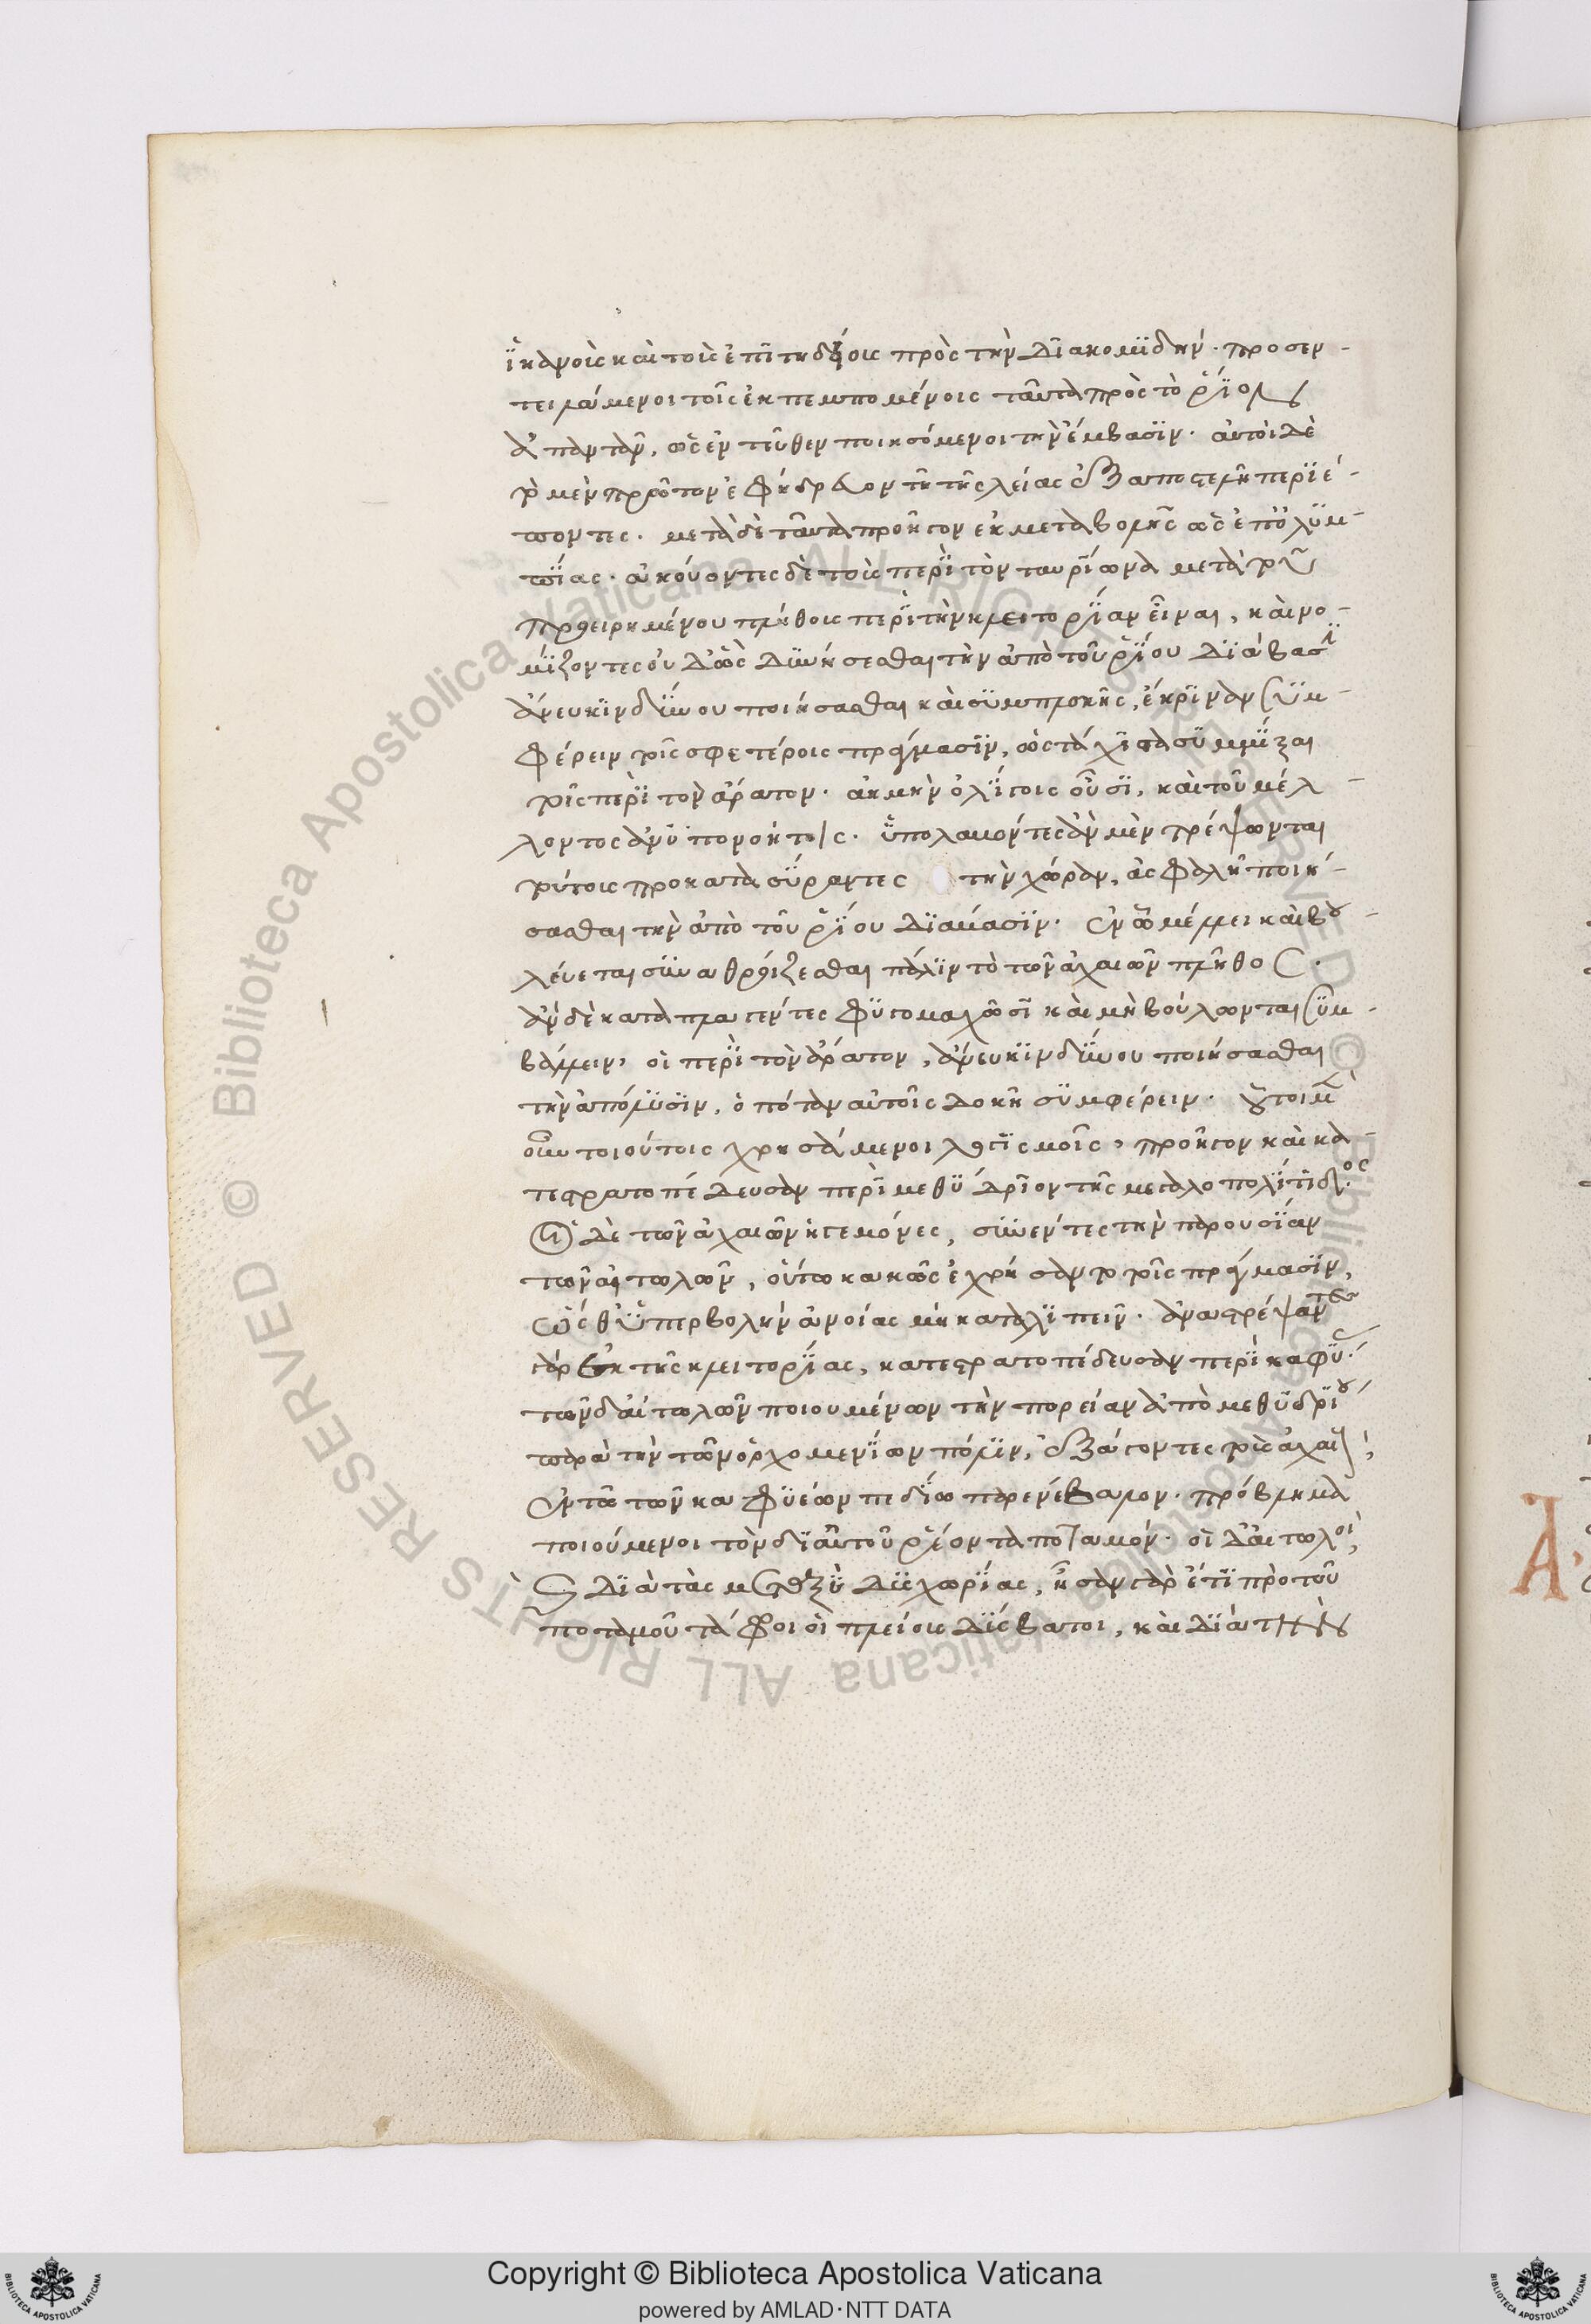 ἱκανοῖς καὶ τοῖς ἐπιτηδείοις πρὸς τὴν διακομιδήν· προσεν-
τειλάμενοι τοῖς ἐκπεμπομένοις ταῦτα πρὸς τὸ ῥίον
ἀπαντᾶν, ὡς ἐντεῦθεν ποιησόμενοι τὴν ἔμβασιν· αὐτοὶ δὲ
τὸ μὲν πρῶτον ἐφήδρευον τῆ τῆς λείας ἐξαποστολῆ περιέ-
ποντες· μετὰ δὲ ταῦτα προῆγον ἐκ μεταβολῆς ὡς ἐπ' ὀλυμ-
πίας· ἀκούοντες δὲ τοὺς περὶ τὸν ταυρίωνα μετὰ τοῦ
προειρημένου πλήθους περὶ τὴν κλειτορίαν εἶναι, καὶ νο-
μίζοντες οὐδ' ὡς δυνήσεσθαι τὴν ἀπὸ τοῦ ῥίου διάβασιν
ἄνευ κινδύνου ποιήσασθαι καὶ συμπλοκῆς, ἔκριναν συμ-
φέρειν τοῖς σφετέροις πράγμασιν, ὡς τάχιστα συμμίξαι
τοῖς περὶ τὸν ἄρατον· ἀκμὴν ὀλίγοις οὖσι, καὶ τοῦ μέλ-
λοντος ἀνυπονοήτοις· ὑπολαβόντες ἂν μὲν τρέψωνται
τούτους προκατασύραντες τὴν χώραν, ἀσφαλῆ ποιή-
σασθαι τὴν ἀπὸ τοῦ ῥίου διάβασιν· ἐν ᾧ μέλλει καὶ βου-
λεύεται συναθροίζεσθαι πάλιν τὸ τῶν ἀχαιῶν πλῆθος·
ἂν δὲ καταπλαγέντες φυγομαχῶσι καὶ μὴ βούλωνται συμ-
βάλλειν, οἱ περὶ τὸν ἄρατον, ἄνευ κινδύνου ποιήσασθαι
τὴν ἀπόλυσιν, ὁπόταν αὐτοῖς δοκῆ συμφέρειν· οὗτοι μὲν
οὖν τοιούτοις χρησάμενοι λογισμοῖς, προῆγον καὶ κα-
τεστρατοπέδευσαν περὶ μεθύδριον τῆς μεγαλοπολίτιδος·
Οἱ δὲ τῶν ἀχαιῶν ἡγεμόνες, συνέντες τὴν παρουσίαν
τῶν αἰτωλῶν, οὕτω κακῶς ἐχρήσαντο τοῖς πράγμασιν,
ὥσθ' ὑπερβολὴν ἀνοίας μὴ καταλιπεῖν· ἀναστρέψαντες
γὰρ ἐκ τῆς κλειτορίας, κατεστρατοπέδευσαν περὶ καφύας·
τῶν δ' αἰτωλῶν ποιουμένων τὴν πορείαν ἀπὸ μεθυδρίου
παρὰ τὴν τῶν ὀρχομενίων πόλιν, ἐξάγοντες τοὺς ἀχαιοὺς,
ἐν τῶ τῶν καφυέων πεδίω παρενέβαλον· πρόβλημα
ποιούμενοι τὸν δι' αὐτοῦ ῥέοντα ποταμόν· οἱ δ' αἰτωλοὶ,
καὶ διὰ τὰς μεταξὺ δυσχωρίας, ἦσαν γὰρ ἔτι πρὸ τοῦ
ποταμοῦ τάφροι οἱ πλείους δύσβατοι, καὶ διὰ τὴν
Α
© Biblioteca Apostolica Vaticana ALL RIGHTS RESERVED
Copyright © Biblioteca Apostolica Vaticana
powered by AMLAD·NTT DATA